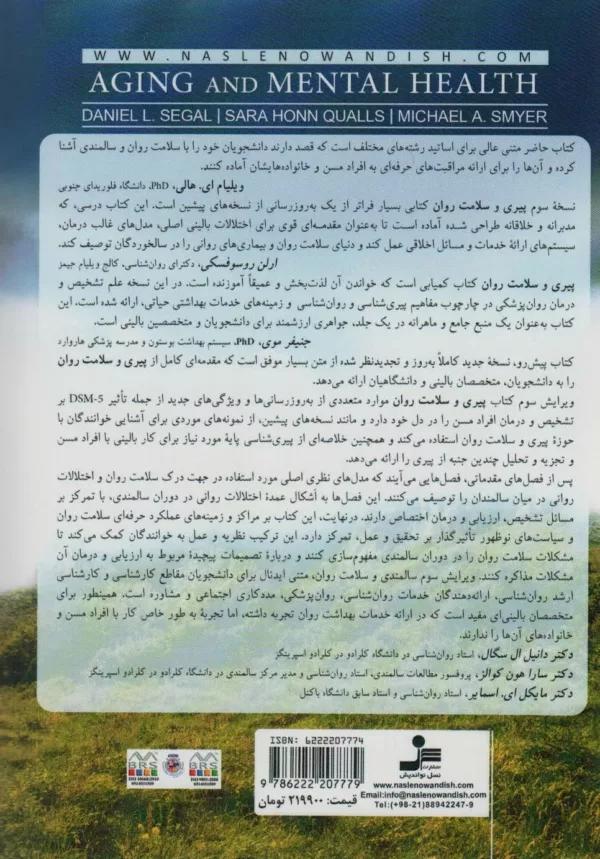 WWW.NASLENOWANDISH.COM
AGING AND MENTAL HEALTH
DANIEL L. SEGAL | SARA HONN QUALLS | MICHAEL A. SMYER
کتاب حاضر متنی عالی برای اساتید رشته‌های مختلف است که قصد دارند دانشجویان خود را با سلامت روان و سالمندی آشنا
کرده و آن‌ها را برای ارائه مراقبت‌های حرفه‌ای به افراد مسن و خانواده‌هایشان آماده کنند.
ویلیام ای. هالی، PhD، دانشگاه فلوریدای جنوبی
نسخهٔ سوم پیری و سلامت روان کتابی بسیار فراتر از یک به‌روزرسانی از نسخه‌های پیشین است. این کتاب درسی، که
مدبرانه و خلاقانه طراحی شده آماده است تا به‌عنوان مقدمه‌ای قوی برای اختلالات بالینی اصلی، مدل‌های غالب درمان،
سیستم‌های ارائهٔ خدمات و مسائل اخلاقی عمل کند و دنیای سلامت روان و بیماری‌های روانی را در سالخوردگان توصیف کند.
ارلن روسوفسکی، دکترای روان‌شناسی، کالج ویلیام جیمز
پیری و سلامت روان کتاب کمیابی است که خواندن آن لذت‌بخش و عمیقاً آموزنده است. در این نسخه علم تشخیص و
درمان روان‌پزشکی در چارچوب مفاهیم پیری‌شناسی و روان‌شناسی و زمینه‌های خدمات بهداشتی حیاتی، ارائه شده است. این
کتاب به‌عنوان یک منبع جامع و ماهرانه در یک جلد، جواهری ارزشمند برای دانشجویان و متخصصین بالینی است.
جنیفر موی، PhD، سیستم بهداشت بوستون و مدرسه پزشکی هاروارد
کتاب پیش‌رو، نسخهٔ جدید کاملاً به‌روز و تجدیدنظر شده از متن بسیار موفق است که مقدمه‌ای کامل از پیری و سلامت روان
را به دانشجویان، متخصصان بالینی و دانشگاهیان ارائه می‌دهد.
ویرایش سوم کتاب پیری و سلامت روان موارد متعددی از به‌روزرسانی‌ها و ویژگی‌های جدید از جمله تأثیر DSM-5 بر
تشخیص و درمان افراد مسن را در دل خود دارد و مانند نسخه‌های پیشین، از نمونه‌های موردی برای آشنایی خوانندگان با
حوزهٔ پیری و سلامت روان استفاده می‌کند و همچنین خلاصه‌ای از پیری‌شناسی پایهٔ مورد نیاز برای کار بالینی با افراد مسن
و تجزیه و تحلیل چندین جنبه از پیری را ارائه می‌دهد.
پس از فصل‌های مقدماتی، فصل‌هایی می‌آیند که مدل‌های نظری اصلی مورد استفاده در جهت درک سلامت روان و اختلالات
روانی در میان سالمندان را توصیف می‌کنند. این فصل‌ها به اَشکال عمدهٔ اختلالات روانی در دوران سالمندی، با تمرکز بر
مسائل تشخیص، ارزیابی و درمان اختصاص دارند. درنهایت، این کتاب بر مراکز و زمینه‌های عملکرد حرفه‌ای سلامت روان
و سیاست‌های نوظهور تأثیرگذار بر تحقیق و عمل، تمرکز دارد. این ترکیب نظریه و عمل به خوانندگان کمک می‌کند تا
مشکلات سلامت روان را در دوران سالمندی مفهوم‌سازی کنند و دربارهٔ تصمیمات پیچیدهٔ مربوط به ارزیابی و درمان آن
مشکلات مذاکره کنند. ویرایش سوم سالمندی و سلامت روان، متنی ایدئال برای دانشجویان مقاطع کارشناسی و کارشناسی
ارشد روان‌شناسی، ارائه‌دهندگان خدمات روان‌شناسی، روان‌پزشکی، مددکاری اجتماعی و مشاوره است. همینطور برای
متخصصان بالینی‌ای مفید است که در ارائه خدمات بهداشت روان تجربه داشته، اما تجربهٔ به طور خاص کار با افراد مسن و
خانواده‌های آن‌ها را ندارند.
دکتر دانیل ال سگال، استاد روان‌شناسی در دانشگاه کلرادو در کلرادو اسپرینگز
دکتر سارا هون کوالز، پروفسور مطالعات سالمندی، استاد روان‌شناسی و مدیر مرکز سالمندی در دانشگاه کلرادو در کلرادو اسپرینگز
دکتر مایکل ای. اسمایر، استاد روان‌شناسی و استاد سابق دانشگاه باکنل
BRS
BRS
ISBN: 6222207774
9 786222 207779
قیمت: ۲۱۹۹۰۰ تومان
انتشارات
نسل نواندیش
www.naslenowandish.com
Email:info@naslenowandish.com
Tel:(+98-21)88942247-9